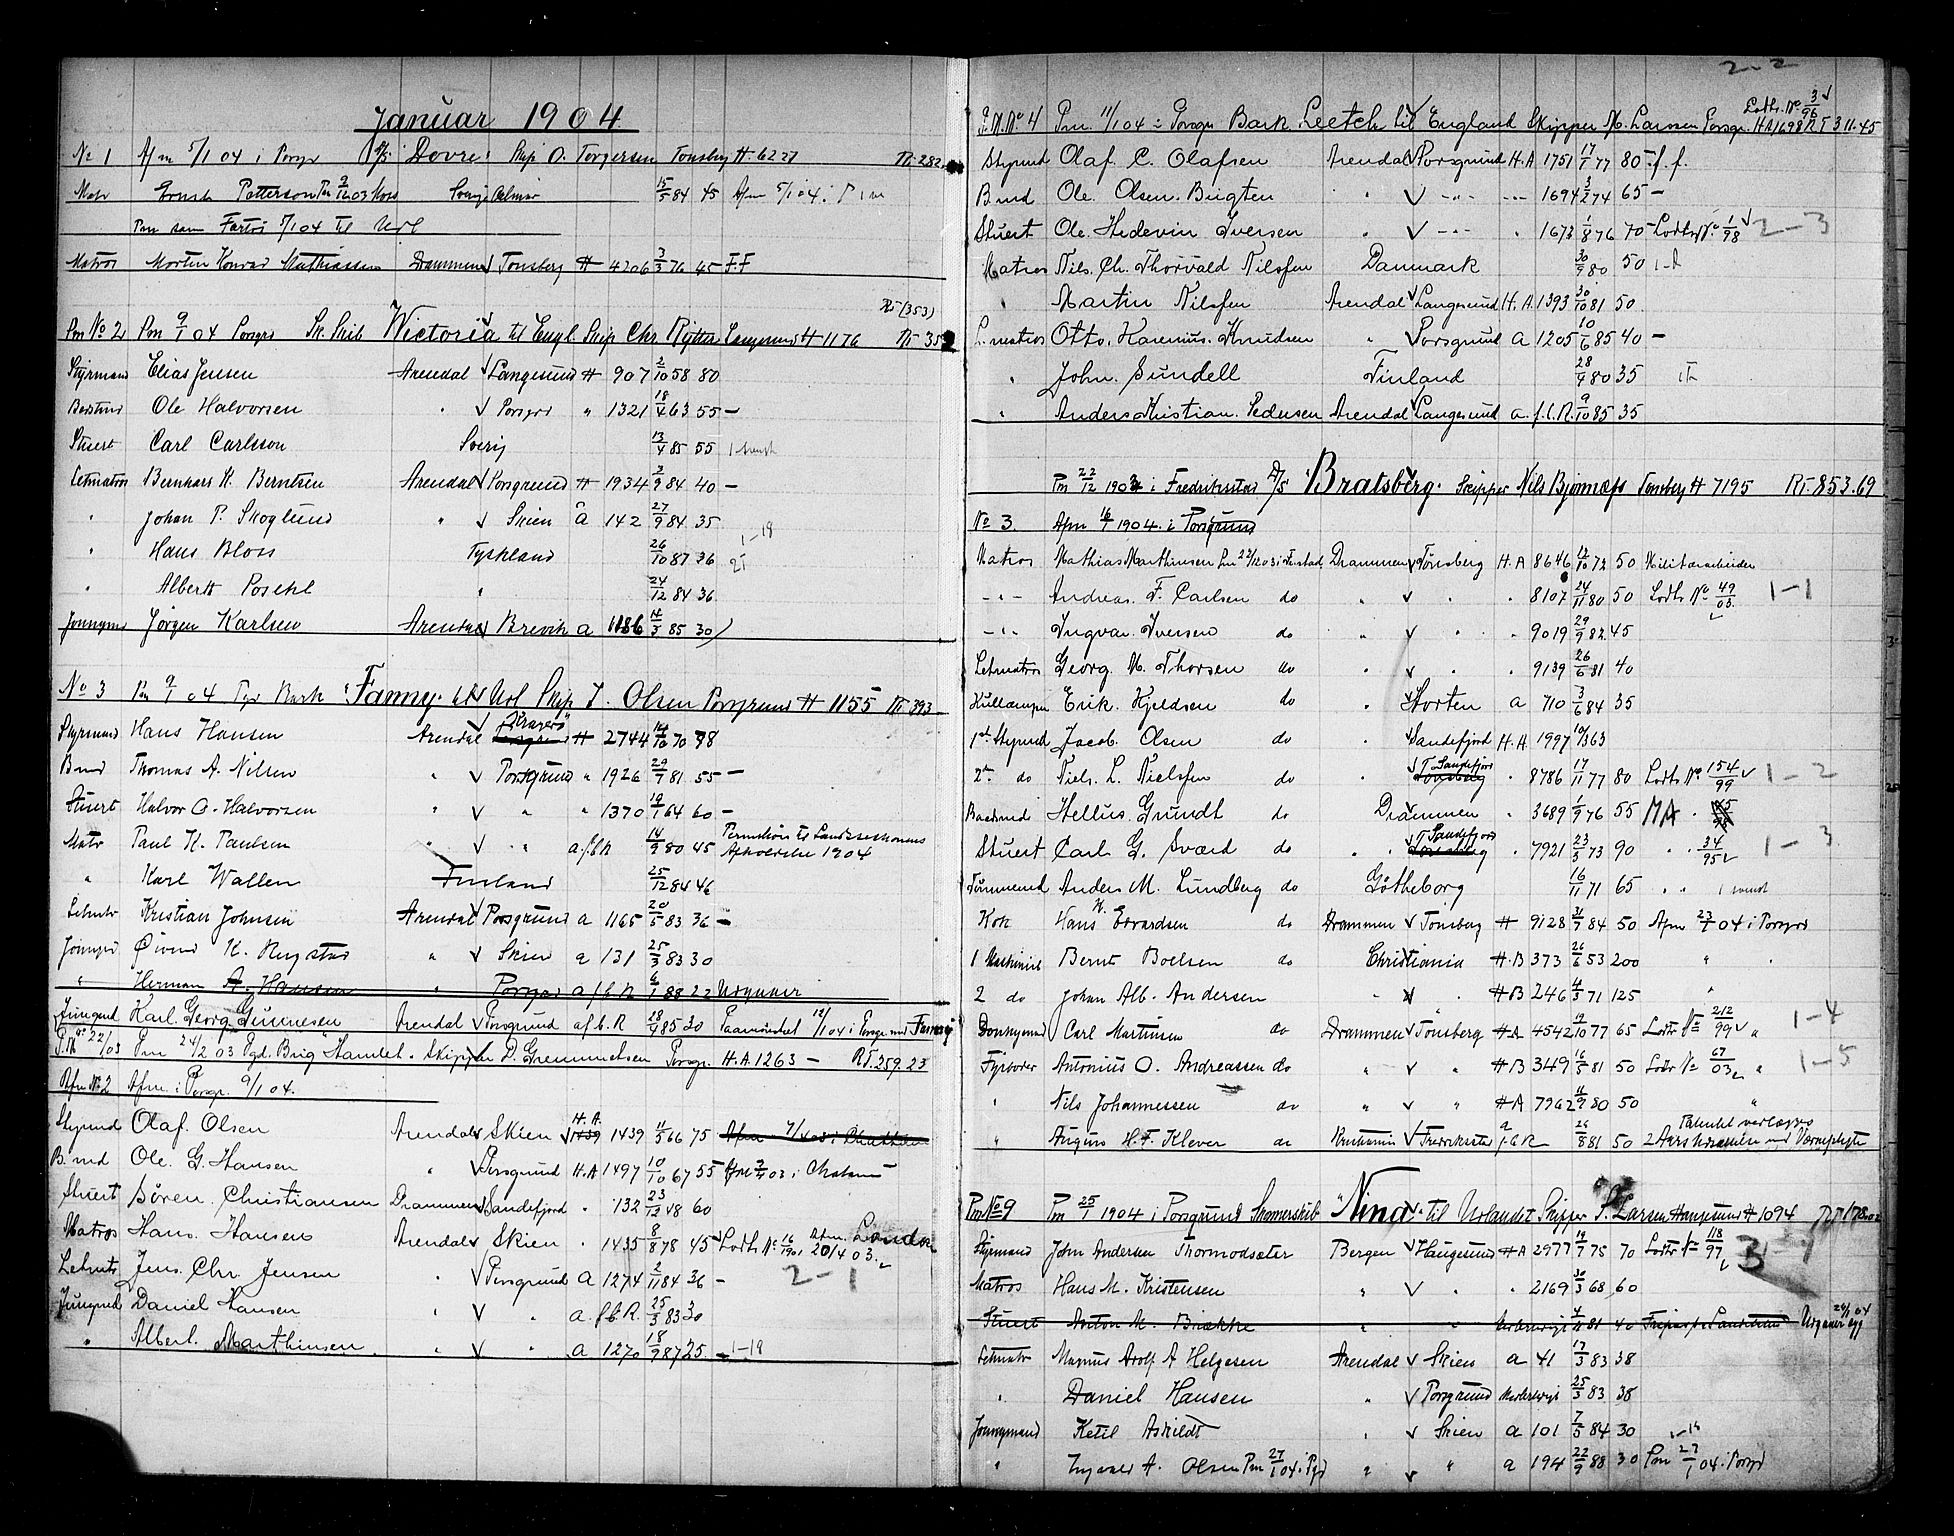 Januar 1904
No 1 Afm 5/1 04 i Porsgr D/S "Dovre" Skip O. Torgersen Tonsberg H. 6227 Rt. 282
Matr Ernst Petterson Pm 9/12 03 Sverig Kalmar 15/5 84 45 Afm 5/1 04 i P
Pm som Fartøi 5/1 04 til Udl
Matros Morten Konrad Mathiassen Drammen Tonsberg H 4206 3/3 76 45 F.F
Rt (353)
Pm No 2 Pm 9/1 04 Porsgr Sk. Skib Wictoria til Engl. Skip Chr Rytter Langesund H 1176 Rt 352
Styrmand Elias Jensen Arendal Langesund H 907 2/10 58 80
Bastmd Ole Halvorsen " Porsgrd " 1321 18/4 63 55 -
Stuert Carl Carlsson Sverig 13/4 85 55 1 svensk
Letmatros Bernhars H. Berntsen Arendal Porsgrund H 1934 3/9 84 40 -
" Johan P. Skoglund " Skien a 142 27/9 84 35
" Hans Bloss Tyskland 26/10 87 36 1-19
" Alberth Poschl " 24/12 84 36
Jonngmd Jørgen Karlsen Arendal Brevik a 1186 14/3 85 30
No 3 Pm 9/1 04 Pgr Bark "Fanny" til Udl Skip J. Olsen Porsgrund H 1155 Rt 393
Styrmand Hans Hansen Arendal Kragerø H 2744 14/10 70 78
Bmd Thomas A. Nilsen " Porsgrund " 1926 29/7 81 55 -
Stuert Halvor O. Halvorsen " " " 1370 19/1 64 60 -
Matr Paul K. Paulsen " " a.f.b.R 14/9 80 45 Permition til Landsessionens
Afholdelse 1904
" Karl Wallen Finland 25/12 84 46
Letmtr Kristian Johnsen Arendal Porsgrund a 1165 20/5 83 36 -
Jonngrd Øivind K. Rugstad " Skien a 131 25/3 83 30
" Herman A. Hansen " Porsgrd a f.b.R 6/1 88 22 Udgaaer
Jungmd Karl Georg Gunnesen Arendal Porsgrund a.f.b.R 28/4 85 30 Paamönstret 12/1 04 i Porsgr med Fanny
P.M. No 22/03 Pm 24/2 03 Pgd. Brig Hamlet. Skipper P. Gremmertsen Porsgr. H.A. 1263 - RT. 259.23
Afm No 2 Afm. i Porsgr. 9/1 04.
Styrmd Olaf Olsen Arendal Skien H.A. 1439 1439 11/5 66 75
B.md Ole. G. Hansen " Porsgrund H.A 1497 10/10 67 55 i Chatam
Stuert Sören Christiansen Drammen Sandefjord " 132 23/12 48 60
Matros Hans Hansen Arendal Skien " 1435 8/8 78 45 Lodts No 16/1901 Afm. London 20/4 03.
Letmtr Jens. Chr. Jensen " Porsgrund a 1274 2/11 84 36 - 2-1
Jungmd Daniel Hansen " " a. f.b.R. 25/3 83 30
" Albert Marthinsen " " a 1270 18/9 87 25. 1-19
2-2
P.M. No 4 Pm 11/1 04 i Porsgr Bark Leetch til England Skipper M. Larssen Porsgr. H.A 1698 RT 311.45
Lodts. No 3/96
Styrmd Olaf C. Olafsen Arendal Porsgrund H.A 1751 17/1 77 80 f.f.
B.md Ole. Olsen. Bugten " -"- 1694 3/2 74 65 -
Stuert Ole. Hedevin Iversen " -"- " 1673 1/8 76 70 Lodts No 1/98 2-3
Matros Nils. Ch. Thorvald Nilsfen Danmark 30/9 80 50 1-D
" Martin Nilsfen Arendal Langesund H.A. 1393 30/10 81 50
L.matros Otto. Harenius. Knudsen " Porsgrund a 1205 10/6 85 40 -
" John. Sundell Finland 28/9 80 35
" Anders Kristian. Pedersen Arendal Langesund a. f.l.R. 9/10 85 35
Pm 22/12 1903 i Fredriksstad D/S "Bratsberg" Skipper Nils Bjonness Tonsberg H 7195 RT. 853.69
No 3. Afm 16/1 1904. i Porsgrund
Matros Mathias Marthinsen Pm 22/12 03 i Frstad Drammen Tönsberg H.A 8646 13/10 72 50 Militærarbeider
-"- Andreas. F. Carlsen do " " " 8107 24/11 80 50 Lodts No 49/03. 1-1
-"- Ingvar Iversen do " " " 9019 29/9 82 45
Letmatros Georg. M. Thorsen do " " " 9139 26/6 81 40
Kullemper Erik. Kjeldsen do " Horten a 710 3/6 84 35
1st Styrmd Jacob. Olsen do Sandefjord H.A. 1997 10/3 63
2n do Niels. L. Nielsfen do T. Sandefjor " 8786 17/11 77 80 Lodts No 154/99 1-2
Baadsmd Hellius Grundt do Drammen " 3689 1/9 76 55 MA
Stuert Carl G. Sværd do T. Sandefjord " 7921 23/3 73 90 " " 34/95 1-3
Tömmermd Anders M. Lundberg do Götheborg 16/11 71 65 " " 1 svensk
Kok Hans K. Edvardsen do Drammen Tonsberg H 9128 31/7 84 50 Afm 23/1 04 i Porsgrd
1 Maskinist Bernt Boelsen do Christiania H.B 373 26/6 53 200 "
2 do Johan Alb. Andersen " " H B 246 4/3 71 125 "
Donkymd Carl Martinsen do Drammen Tonsberg H A 4542 19/10 77 65 Lodtr No 212/99 " 1-4
Fyrboder Antonius O. Andreassen do " " H B 349 16/5 81 50 Lodtr No 67/03 " 1-5
" Nils Johannessen do " " H A 7962 11/9 80 50 "
" August H. F. Klever do Fredriksstad a f.b.R 26/8 81 50
Pm No 9 Pm 25/1 1904 i Porsgrund Skonnertskib "Nina" til Udlandet Skipper P. Larsen Haugesund H 1094 RT 178.02
Styrmand John Andersen Thormodsæter Bergen Haugesund H A 2977 19/7 75 70 Lodtr No 118/97 3-1
Matros Hans M. Kristensen " " " 2169 30/3 68 60
Stuert Anton M. Brække " " 4/11 81 40 Udgaaer 26/1 04
Letmatr Magnus Adolf A Helgesen Arendal Skien a 41 17/3 83 38
" Daniel Hansen " Porsgrund 25/3 83 38
Jonngmand Ketil Askildt " Skien a 101 7/5 84 30 1-19
" Ingvald A. Olsen Pm 27/1 04 i Pgrd " " a 194 22/9 88 30 Pm 27/1 04. i Porsgrd